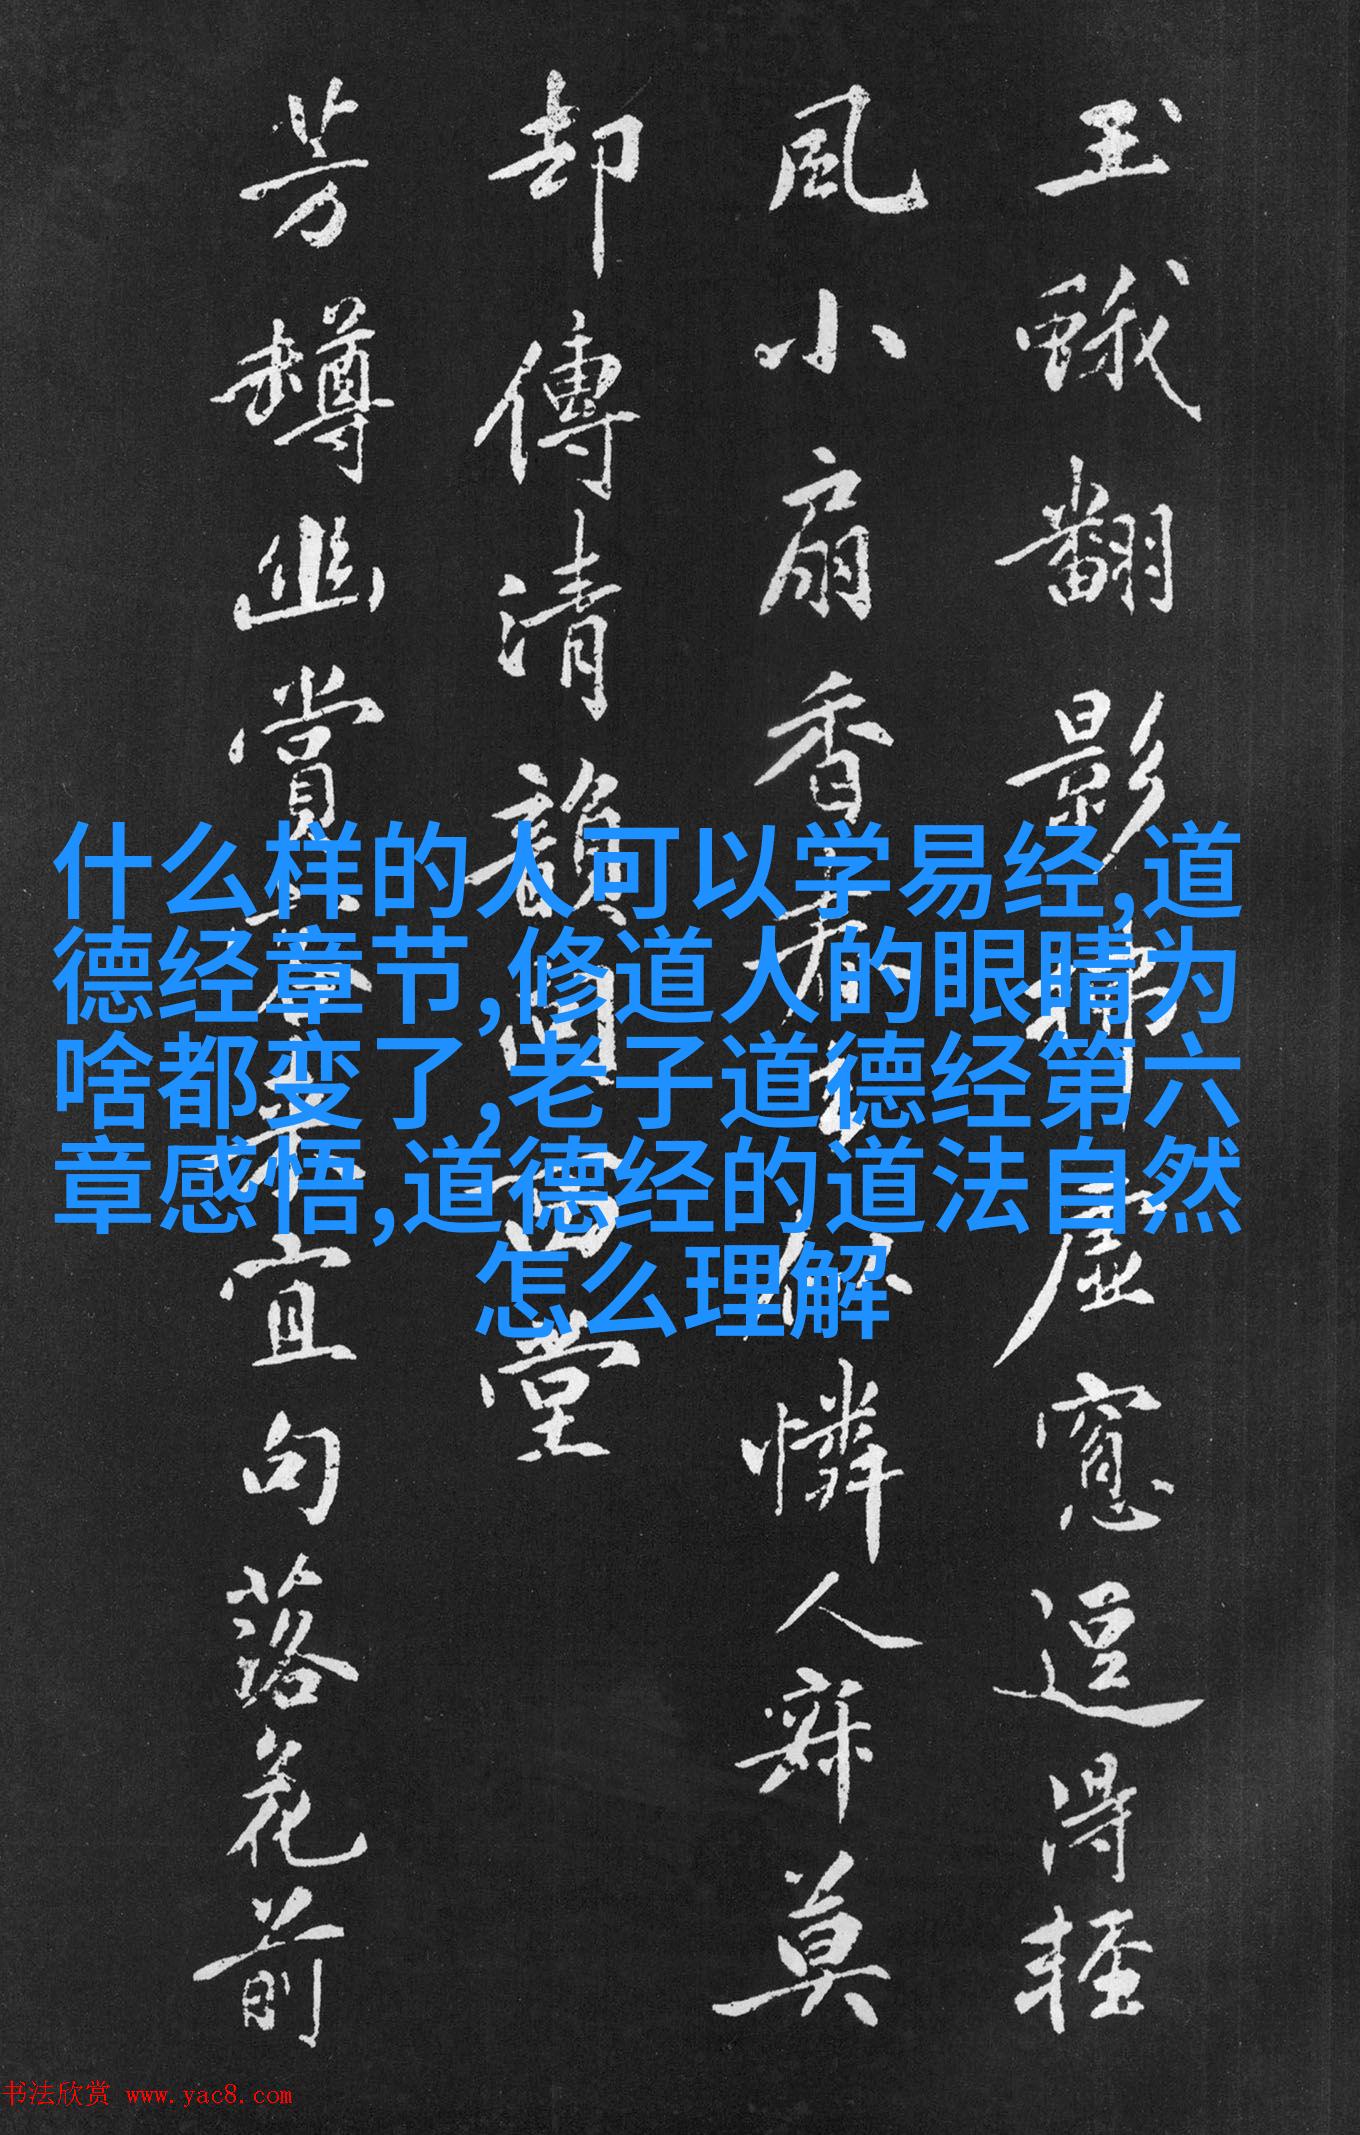 玉蛾翻影掃虛窗逗得輕
風小扇香
憐人寐莫
却傳清韻
堂
芳樽幽賞
宜句落花前
什么样的人可以学易经,道
德经章节,修道人的眼睛为
啥都变了,老子道德经第六
章感悟,道德经的道法自然
怎么理解
书法欣赏 www.yac8.com